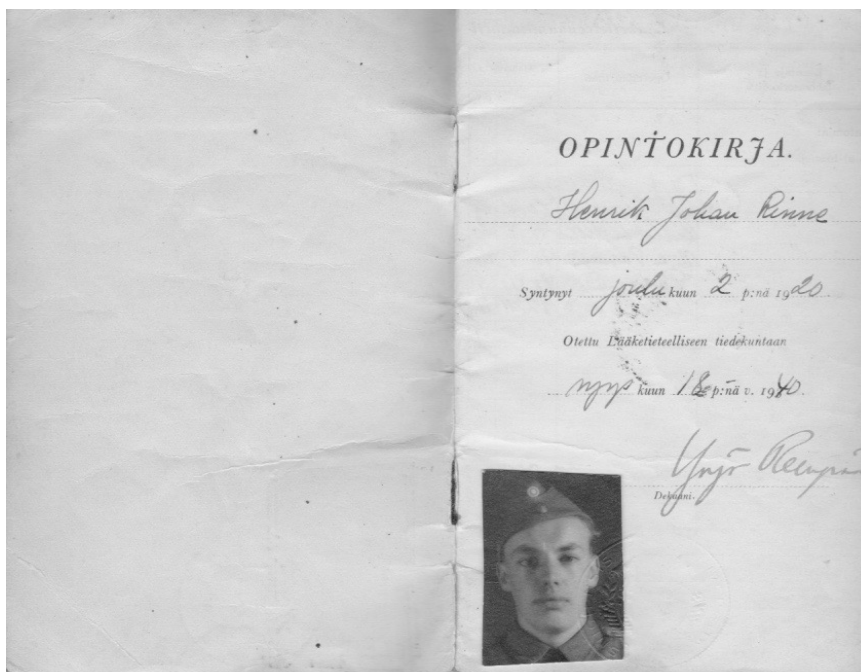 OPINTOKIRJA.
Henrik Johan Rinne
Syntynyt joulu kuun 2 p:nä 1920
Otettu Lääketieteelliseen tiedekuntaan
syys kuun 18 p:nä v. 1940.
Yrjö
Dekaani.